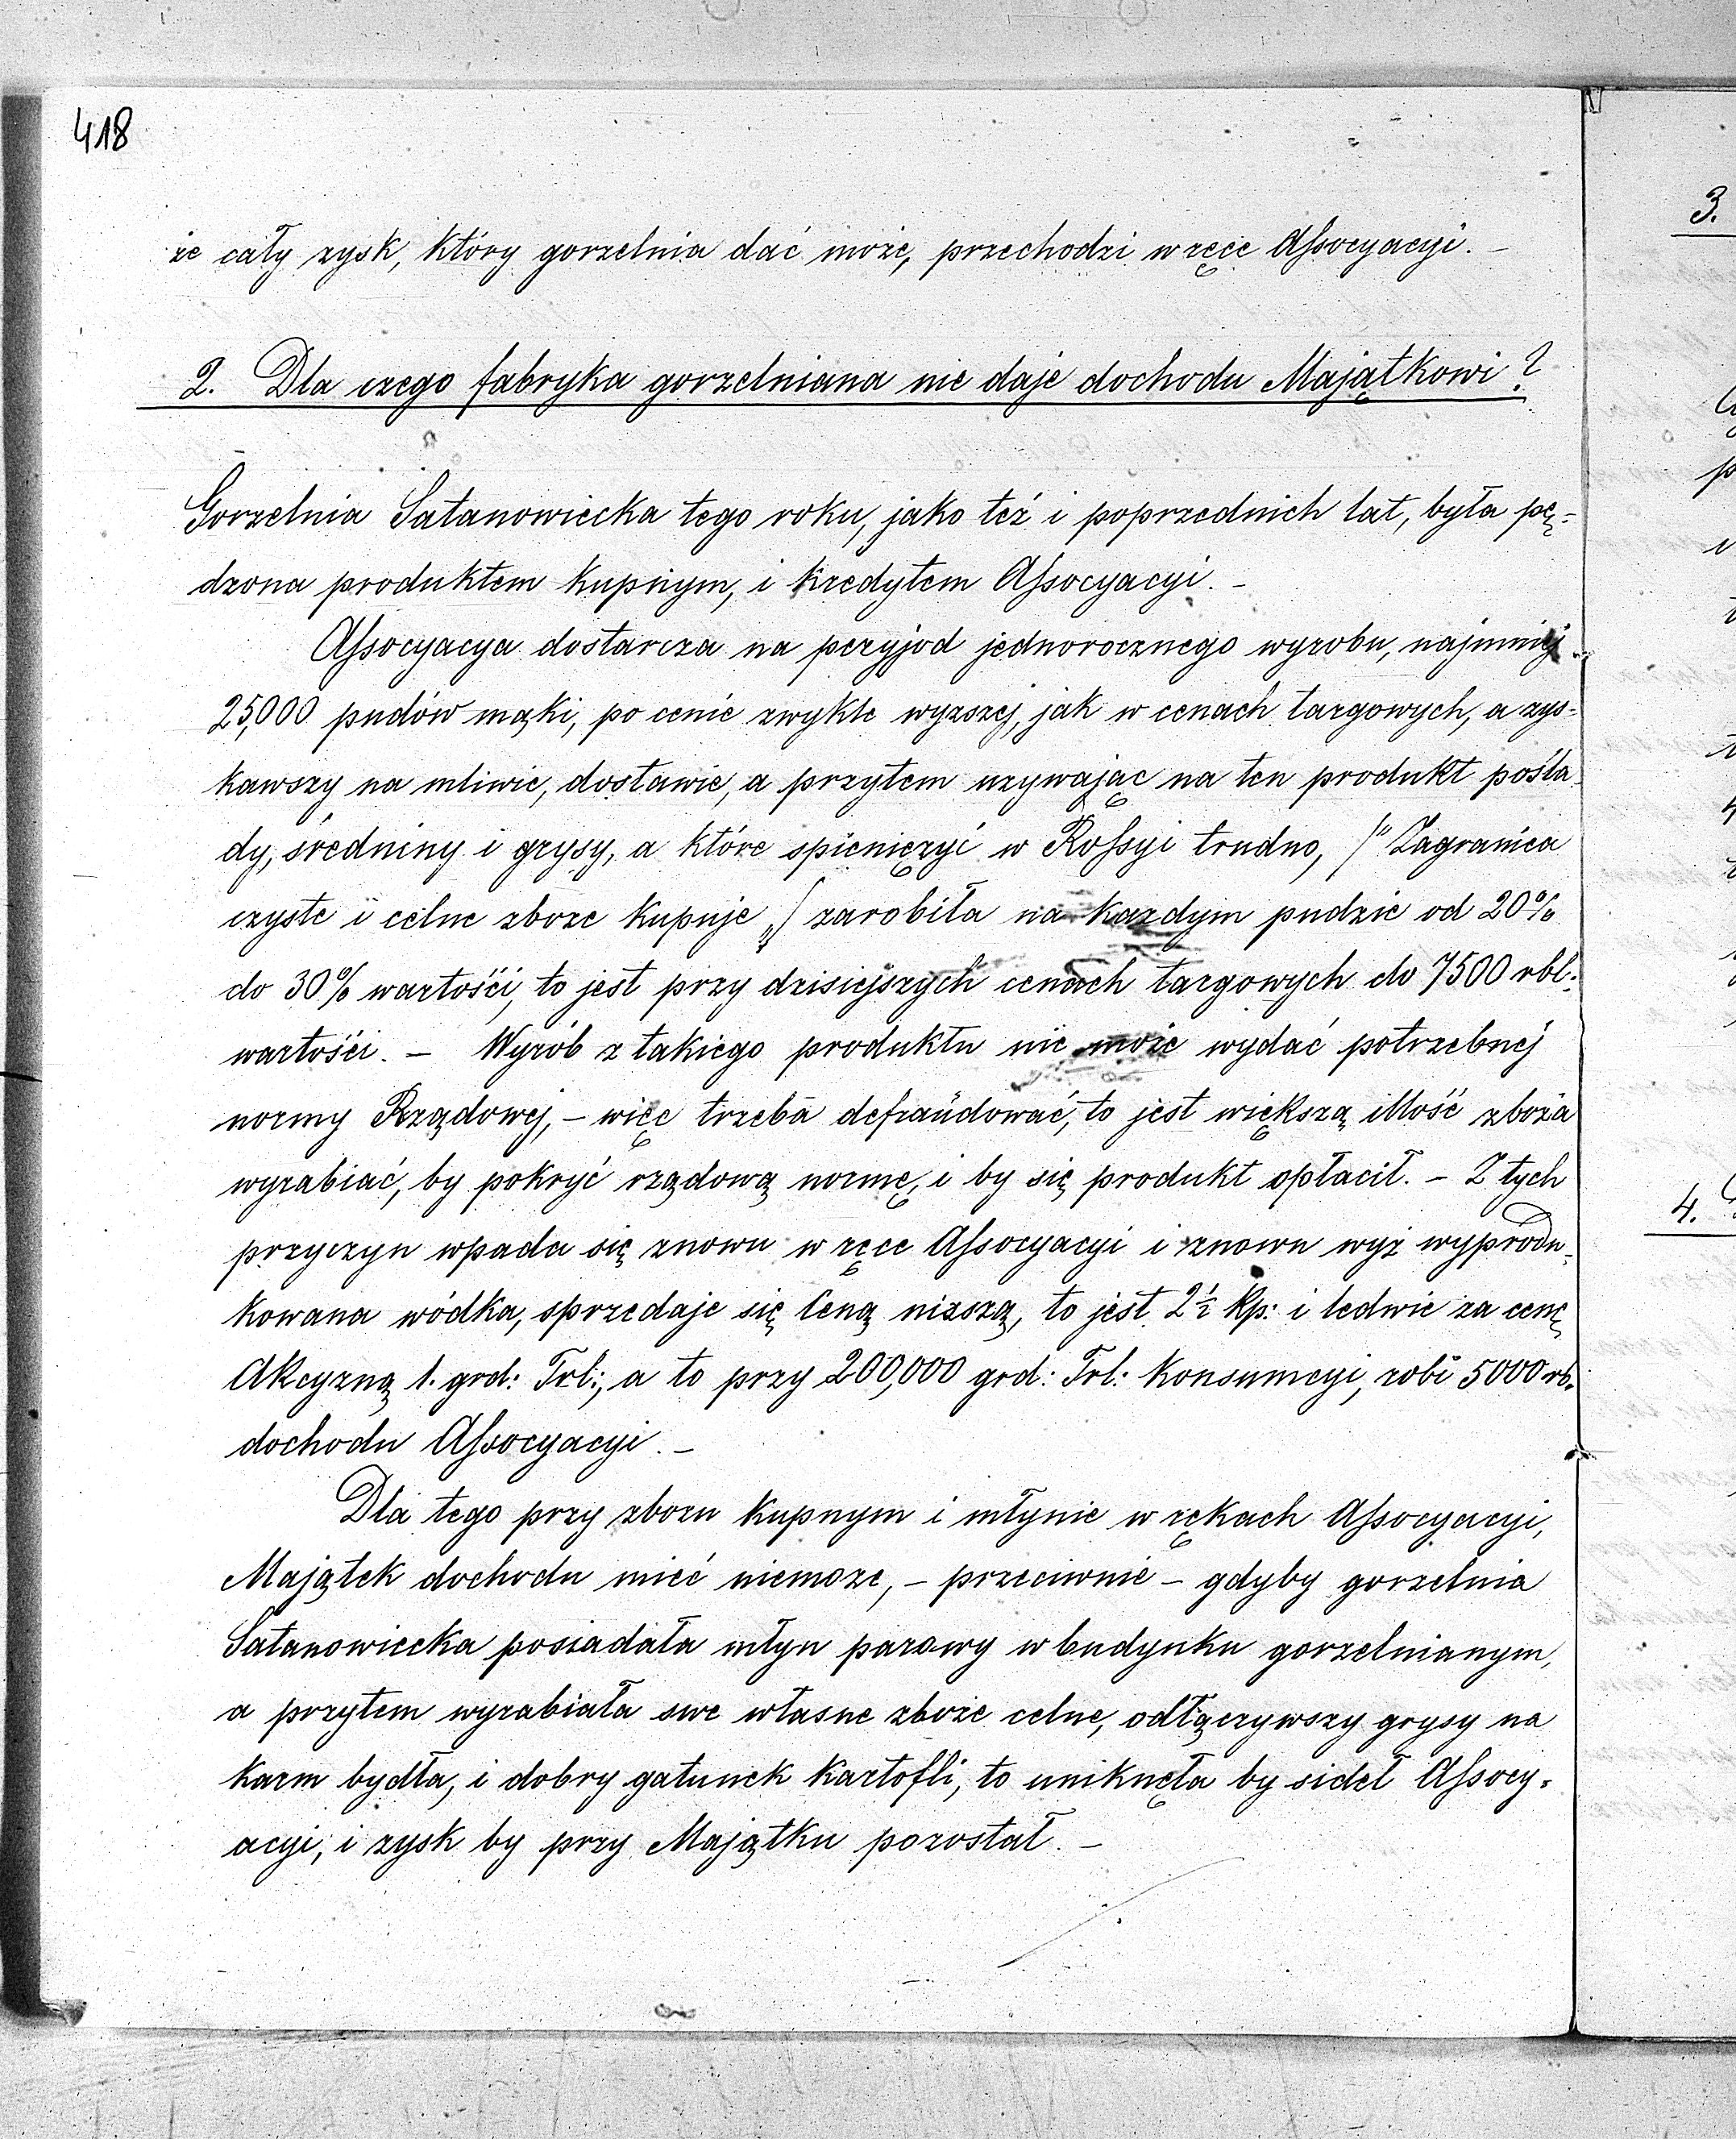 418
że cały zysk, który gorzelnia dać może, przechodzi w ręce Assocyacyi. –
2. Dla czego fabryka gorzelniana nie daje dochodu Majątkowi?
Gorzelnia Satanowiecka tego roku, jako też i poprzednich lat, była pę-
dzona produktem kupnym, i kredytem Assocyacyi. –
Assocyacya dostarcza na peryjod jednorocznego wyrobu, najmniej
25,000 pudów mąki, po cenie zwykle wyzszej, jak w cenach targowych, a zys-
kawszy na mliwie, dostawie, a przytem uzywając na ten produkt pośla
dy, średniny i grysy, a które spieniężyć w Rossyi trudno, /"Zagranica
czyste i celne zboze kupuje „/ zarobiła na kazdym pudzie od 20%
do 30% wartości, to jest przy dzisiejszych cenach targowych do 7500 rbl:
wartości. – Wyrób z takiego produktu nie może wydać potrzebnej
normy Rządowej, – więc trzeba defraudować, to jest większą illość zboża
wyrabiać, by pokryć rządową normę, i by się produkt opłacił. – Z tych
przyczyn wpada się znowu w ręce Assocyacyi i znowu wyż wyprodu-
kowana wódka, sprzedaje się Ceną nizszą, to jest 2½ Kp: i ledwie za cenę
Akcyzną 1. grd: Trl:, a to przy 200,000 grd: Trl: Konsumcyi, robi 5000 rb.
dochodu Assocyacyi. –
Dla tego przy zbozu kupnym i młynie w rękach Assocyacyi,
Majątek dochodu mieć niemoze, – przeciwnie – gdyby gorzelnia
Satanowiecka posiadała młyn parowy w budynku gorzelnianym,
a przytem wyrabiała swe własne zboże celne, odłączywszy grysy na
karm bydła, i dobry gatunek Kartofli, to uniknęła by sideł Assocy-
acyi, i zysk by przy Majątku pozostał. –
3.
4.